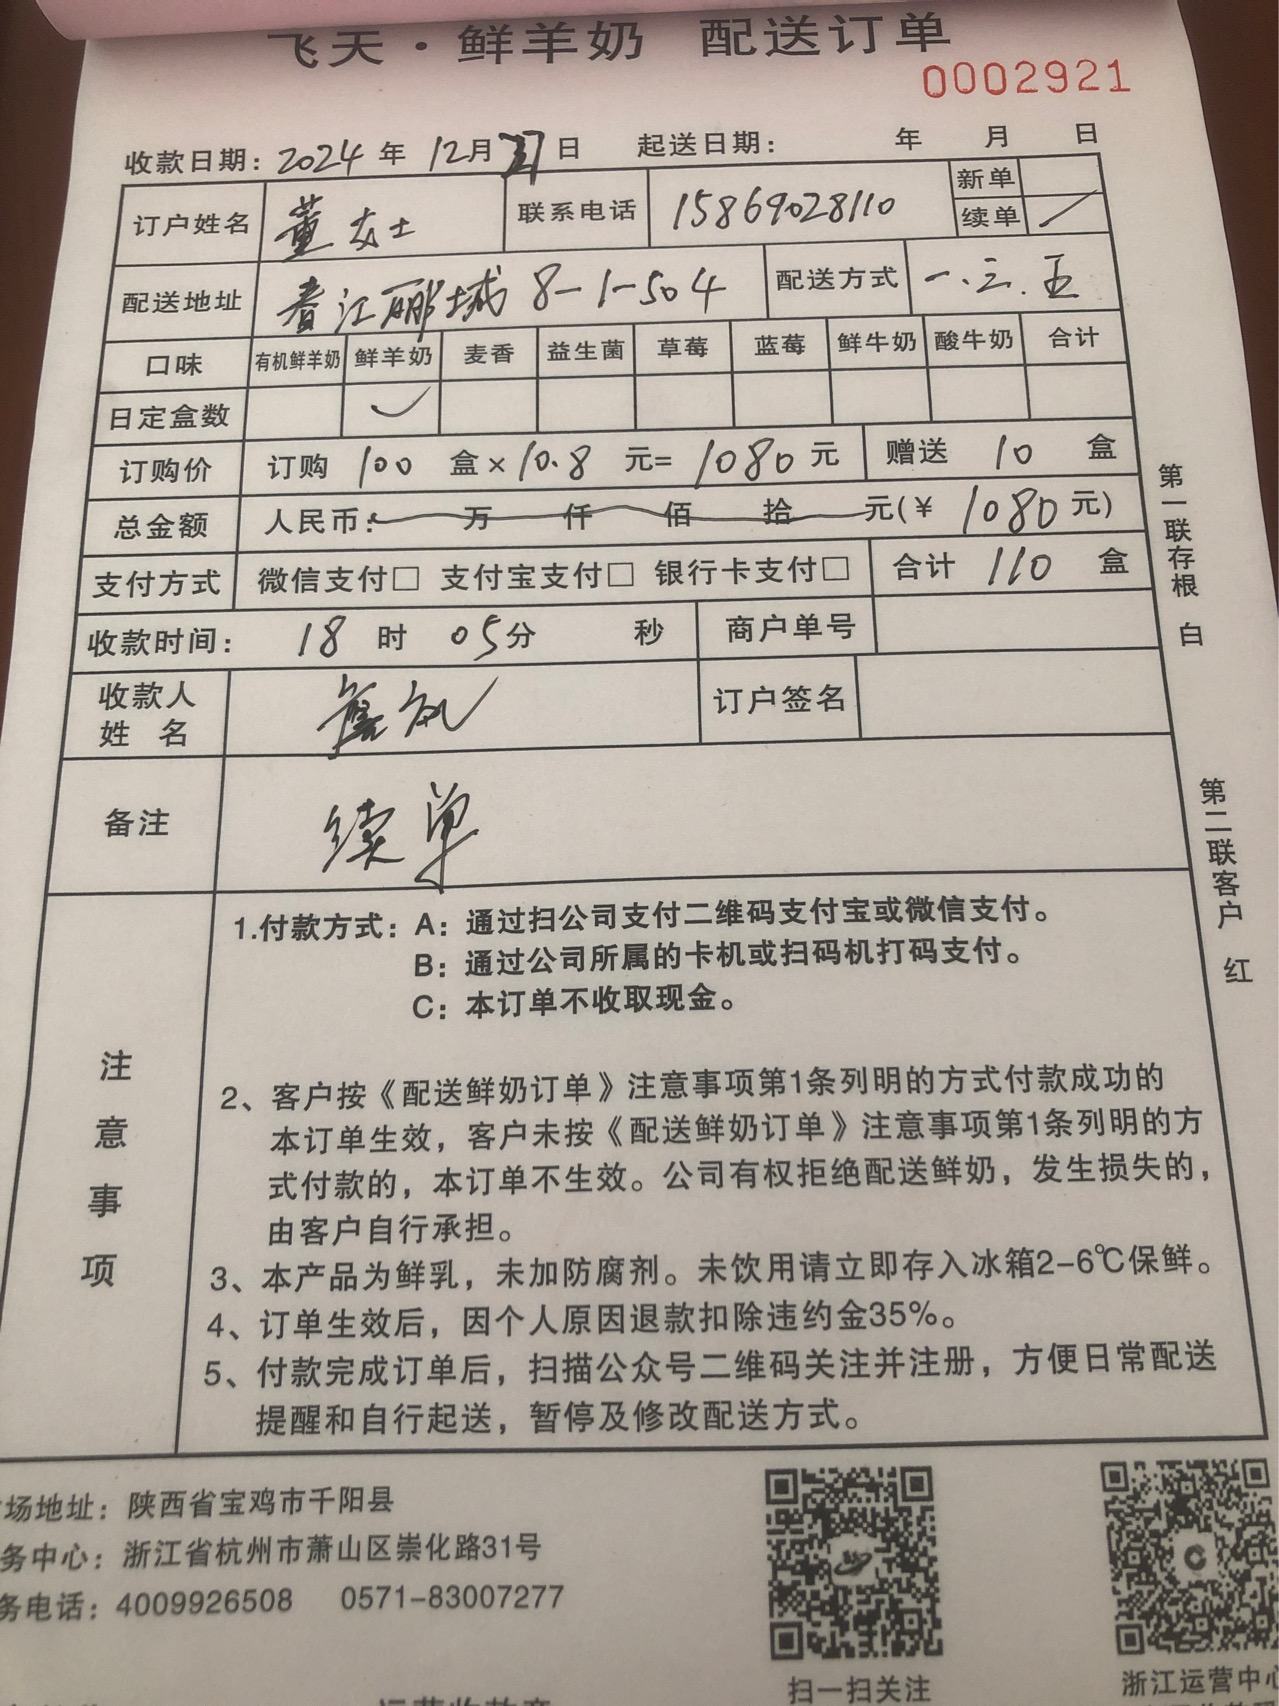 飞天·鲜羊奶 配送订单
0002921
收款日期：2024年 12月27日 起送日期： 年 月 日
订户姓名 董女士 联系电话 15869028110 新单
续单 /
配送地址 春江郦城 8-1-504 配送方式 一.三.五
口味 有机鲜羊奶 鲜羊奶 麦香 益生菌 草莓 蓝莓 鲜牛奶 酸牛奶 合计
日定盒数 ✓
订购价 订购 100 盒×10.8 元= 1080 元 赠送 10 盒
总金额 人民币： 万 仟 佰 拾 元(￥ 1080 元)
支付方式 微信支付□ 支付宝支付□ 银行卡支付□ 合计 110 盒
收款时间： 18 时 05分 秒 商户单号
收款人
姓 名
订户签名
备注 续单
注意事项
1.付款方式：A：通过扫公司支付二维码支付宝或微信支付。
B：通过公司所属的卡机或扫码机打码支付。
C：本订单不收取现金。
2、客户按《配送鲜奶订单》注意事项第1条列明的方式付款成功的
本订单生效，客户未按《配送鲜奶订单》注意事项第1条列明的方
式付款的，本订单不生效。公司有权拒绝配送鲜奶，发生损失的，
由客户自行承担。
3、本产品为鲜乳，未加防腐剂。未饮用请立即存入冰箱2-6℃保鲜。
4、订单生效后，因个人原因退款扣除违约金35%。
5、付款完成订单后，扫描公众号二维码关注并注册，方便日常配送
提醒和自行起送，暂停及修改配送方式。
第一联存根 白
第二联客户 红
场地址：陕西省宝鸡市千阳县
务中心：浙江省杭州市萧山区崇化路31号
务电话：4009926508 0571-83007277
扫一扫关注
浙江运营中心